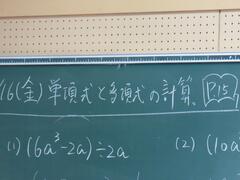 /16(金) 単項式と多項式の計算 P.15
(1) (6a³-2a)÷2a (2) (10a